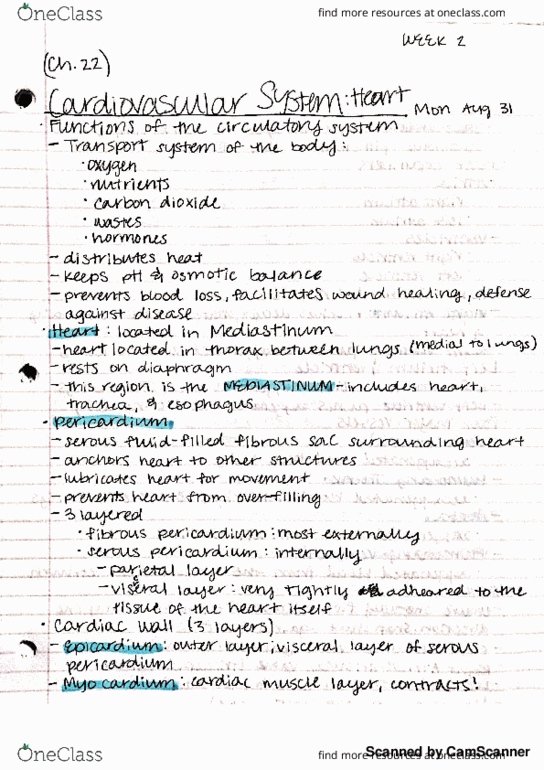 OneClass
find more resources at oneclass.com
WEEK 2
(Ch. 22)
Cardiovascular System: Heart Mon Aug 31
· Functions of the circulatory system
- Transport system of the body:
· oxygen
· nutrients
· carbon dioxide
· wastes
· hormones
- distributes heat
- keeps pH & osmotic balance
- prevents blood loss, facilitates wound healing, defense
against disease
· Heart: located in Mediastinum
- heart located in thorax between lungs (medial to lungs)
- rests on diaphragm
- this region is the MEDIASTINUM - includes heart,
trachea, & esophagus
· pericardium
- serous fluid-filled fibrous sac surrounding heart
- anchors heart to other structures
- lubricates heart for movement
- prevents heart from over-filling
- 3 layered
· fibrous pericardium: most externally
· serous pericardium: internally
- parietal layer
&
- visceral layer: very tightly adhered to the
tissue of the heart itself
· Cardiac wall (3 layers)
- Epicardium: outer layer; visceral layer of serous
pericardium
- Myocardium: cardiac muscle layer, contracts!
OneClass
find more resources at oneclass.com
Scanned by CamScanner